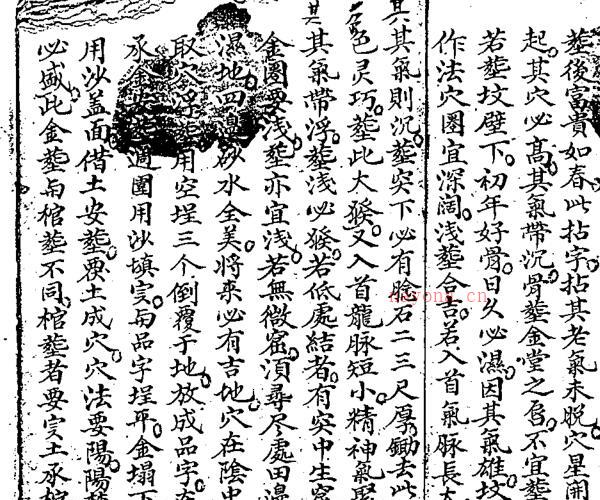 葬後富貴如春此拈字拈其老氣未脫穴星開
起其穴必高其氣帶沉骨葬金堂之唇不宜葬
若葬坟壁下初年好骨日久必濕因其氣雄坟
作法穴圈宜深濶浅葬合吉若入首氣脉長
其其氣則沉葬突下必有脸石二三尺厚鋤去此
色灵巧葬此大猴又入首龍脉短小精神氣
其氣帶浮葬浅必猴若低處結者有突中生窩
金圏要浅葬亦宜浅若無微窟湏尋尽處田
濕地四邉砂水全美將來必有吉地穴在陰
取穴浮葬用空埕三个倒覆于地放成品字
承金安葬週圍用沙填实与品字埕平金塌下
用沙盖面借土安葬覆土成穴穴法要陽陽
必盛此金葬与棺葬不同棺葬者要实土承棺
nayong.cn